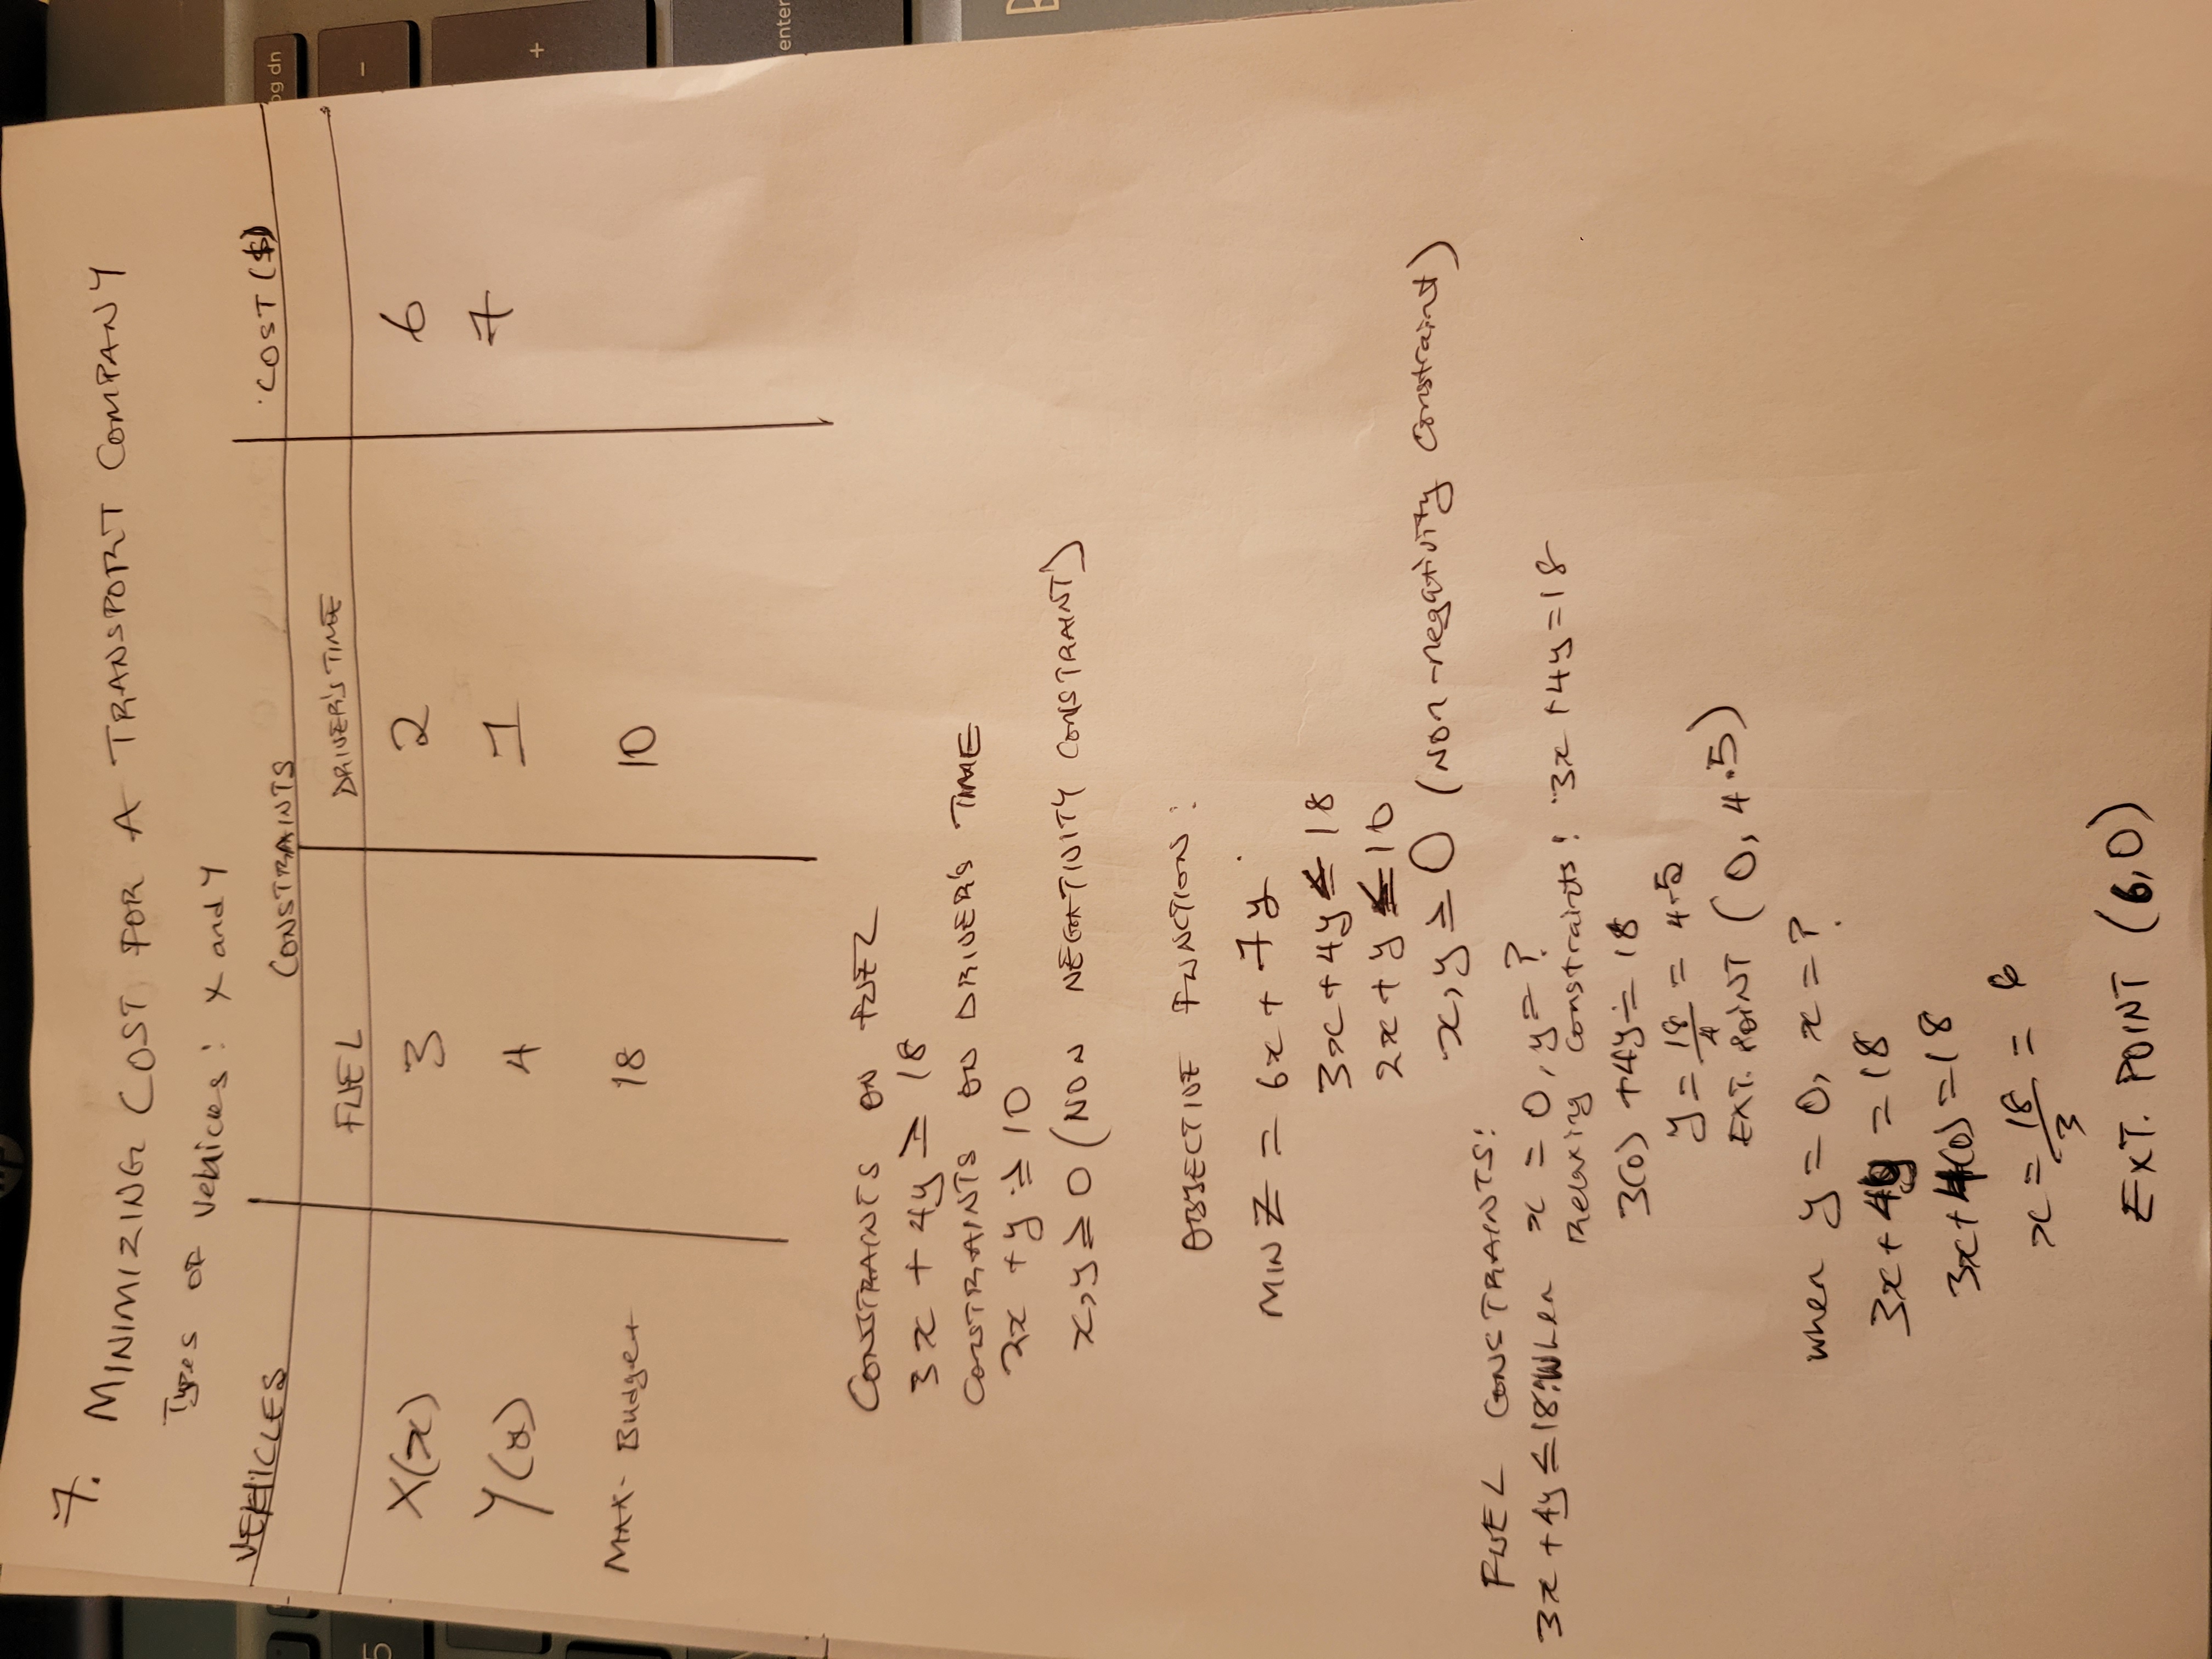 7. MINIMIZING COST FOR A TRANSPORT COMPANY
Types OF Vehicles: X and Y
VEHICLES CONSTRAINTS COST ($)
FUEL DRIVER'S TIME
X(x) 3 2 6
Y(y) 4 1 7
MAX- Budget 18 10
CONSTRAINTS ON FUEL
3x + 4y ≥ 18
CONSTRAINTS ON DRIVER'S TIME
2x + y ≥ 10
x,y ≥ 0 (NON NEGATIVITY CONSTRAINT)
OBJECTIVE FUNCTION:
MIN Z = 6x + 7y
3x + 4y ≤ 18
2x + y ≤ 10
x, y ≥ 0 (NON-negativity Constraint)
FUEL CONSTRAINTS:
3x + 4y ≤ 18: When x = 0, y = ?
Relaxing constraints: 3x + 4y = 18
3(0) + 4y = 18
y = 18/4 = 4.5
EXT. POINT (0, 4.5)
when y = 0, x = ?
3x + 4y = 18
3x + 4(0) = 18
x = 18/3 = 6
EXT. POINT (6,0)
pg dn
5
-
+
enter